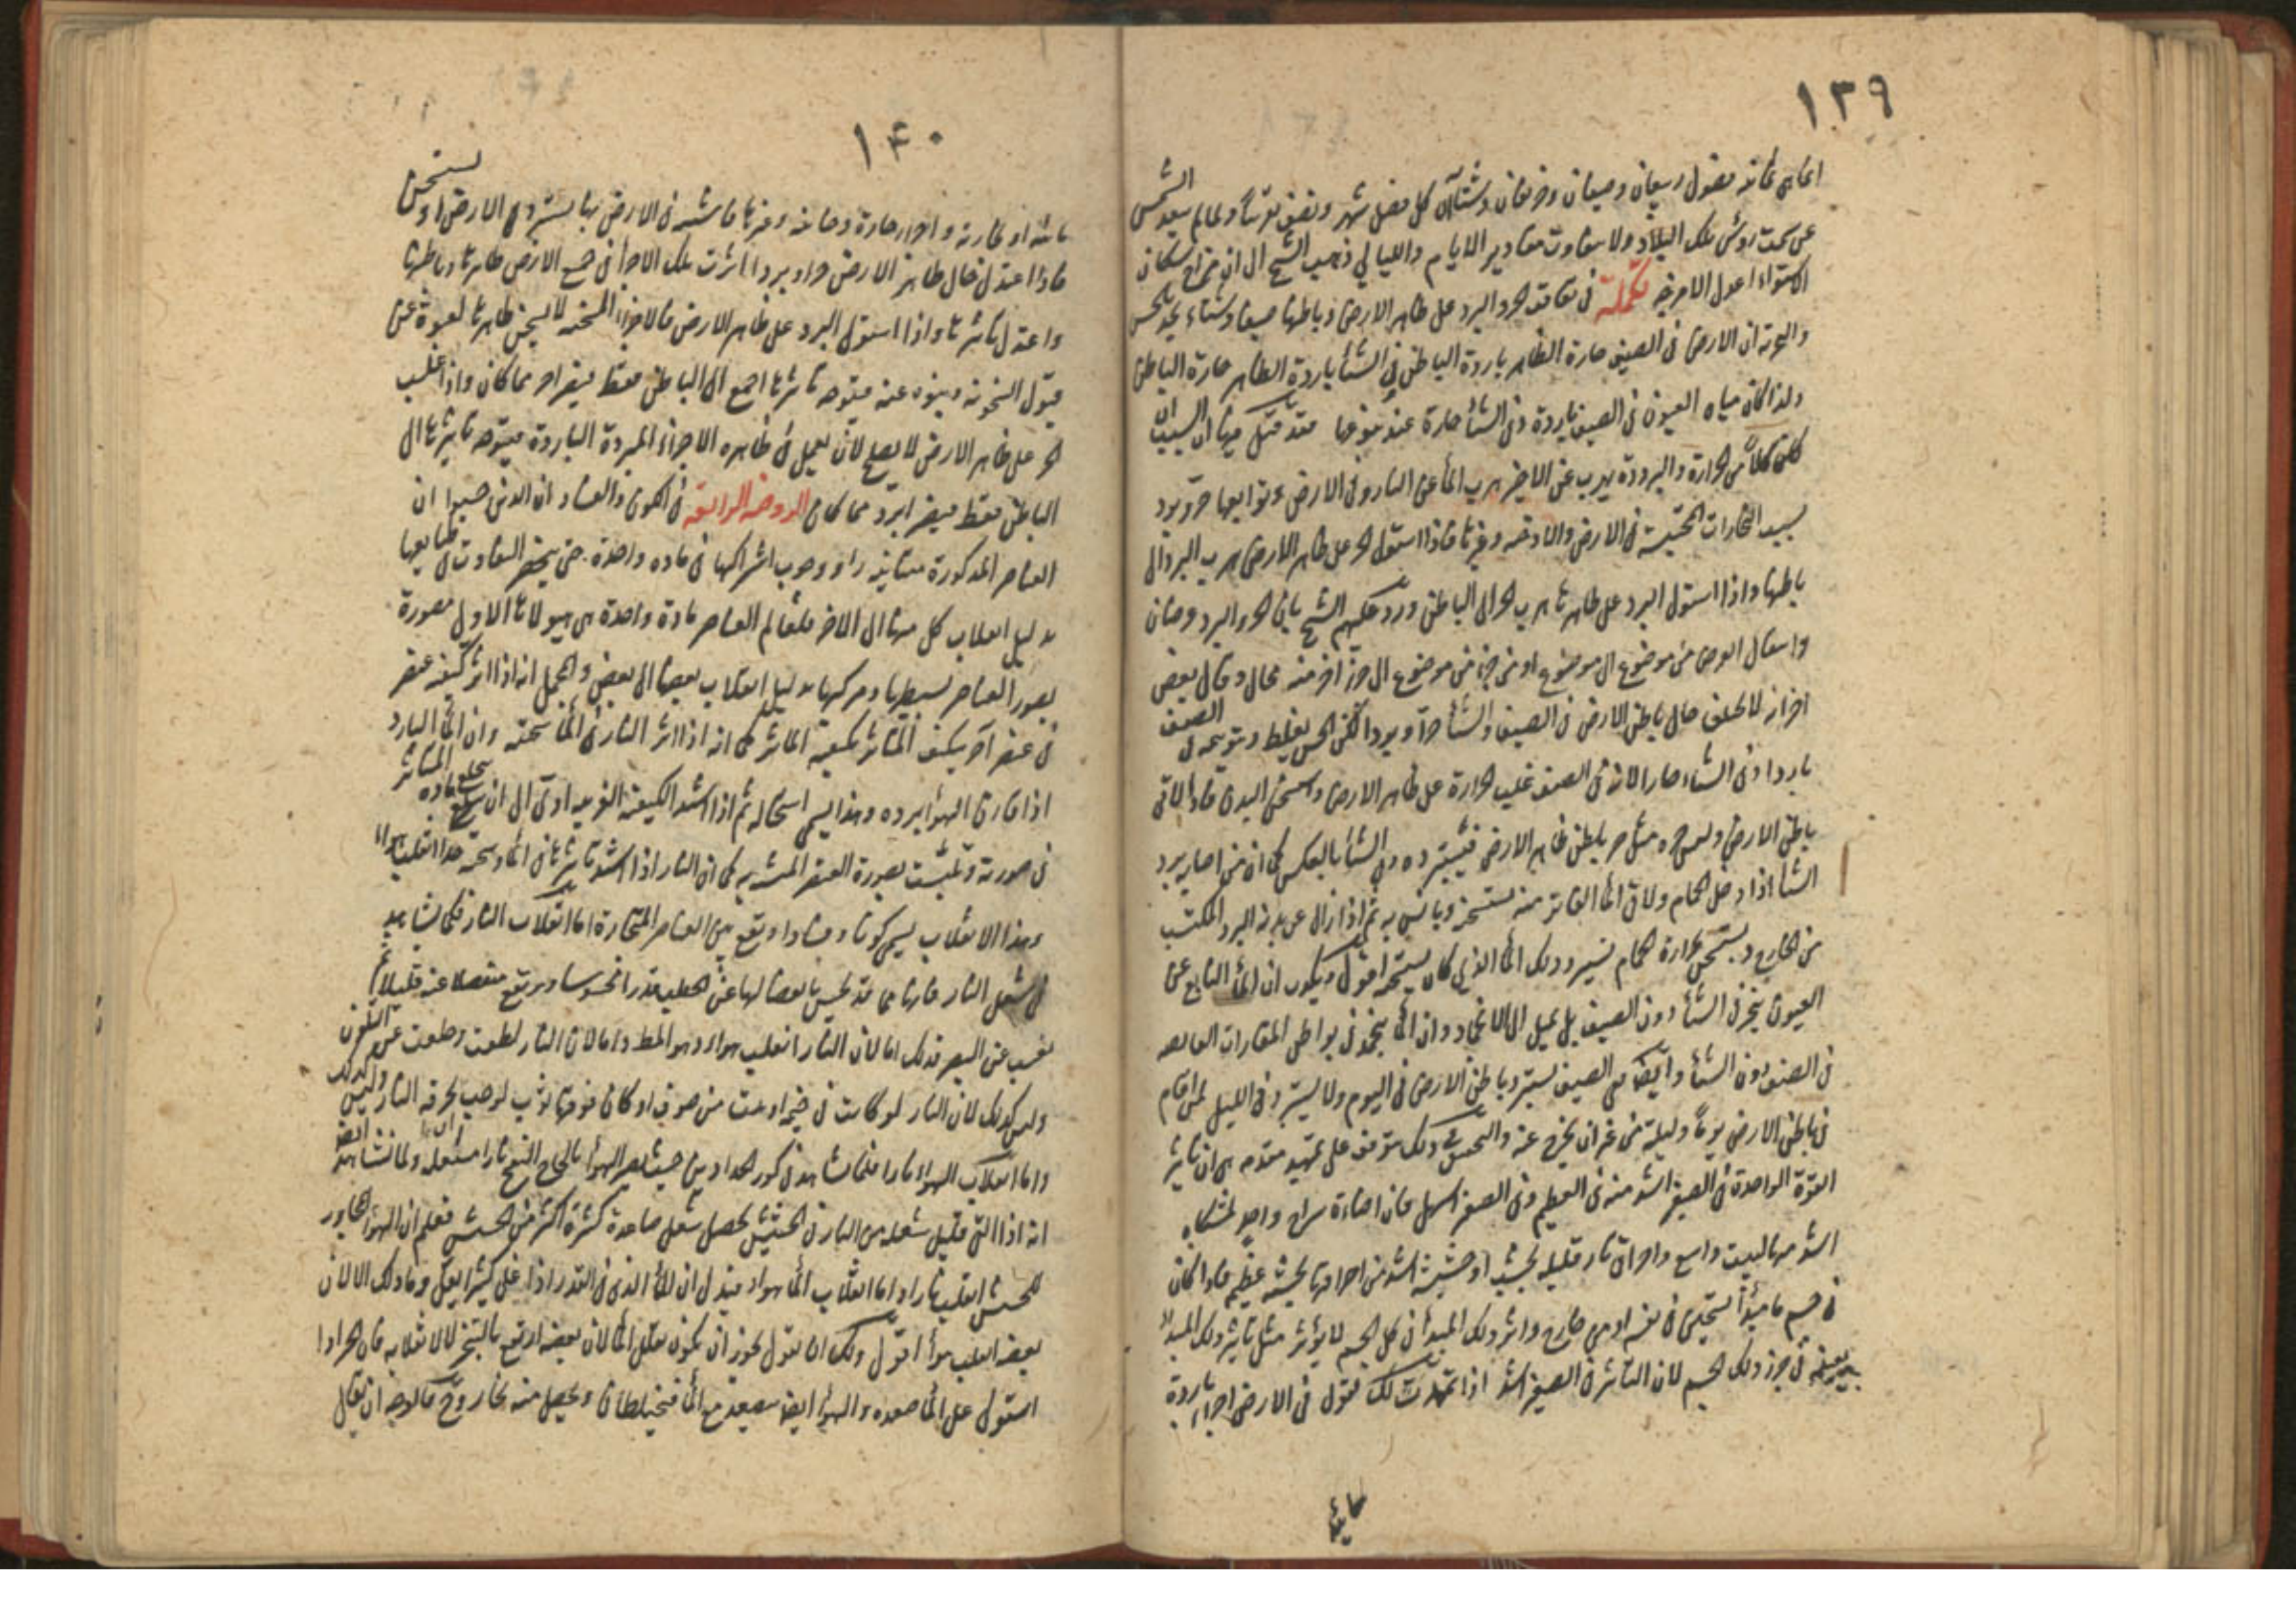 ١٣٩
ثمانية فصول ربيعان وصيفان وخريفان وشتاآن كل فصل شهر ونصف تقريبا ولما لم يبعد الشمس
عن سمت رؤس تلك البلاد ولا يتفاوت مقادير الايام والليالي ذهب الشيخ الى ان مزاج سكان
الاستواء اعدل الامزجة تكملة في تعاقب الحر والبرد على ظاهر الارض وباطنها صيفا وشتاء
والتجربة ان الارض في الصيف حارة الظاهر باردة الباطن وفي الشتاء باردة الظاهر حارة الباطن
ولذا كان مياه العيون في الصيف باردة وفي الشتاء حارة عند نبوعها فقد قيل فيها ان السبب ان
كلا من الحرارة والبرودة يهرب عن الاخر هرب الماء عن النار وفي الارض وتوابعها حر وبرد
بسبب البخارات المحتبسة في الارض والادخنة وغيرها فاذا استولى الحر على ظاهر الارض هرب البرد الى
باطنها واذا استولى البرد على ظاهرها هرب الحر الى الباطن ورد عليهم الشيخ بان الحر والبرد عرضان
وانتقال العرض من موضوع الى موضوع او من جزء من موضوع الى جزء اخر منه محال وقال بعض
اخر انه لا يختلف حال باطن الارض في الصيف والشتاء حرا وبردا لكن الحس يغلط ويتوهمه في الصيف
باردا وفي الشتاء حارا لانه في الصيف غلب حرارة على ظاهر الارض واسخن البدن فاذا لاقى
باطن الارض ولمس حره مثل حر باطن ظاهر الارض فيستبرده وفي الشتاء بالعكس كما ان من اصابه برد
الشتاء اذا دخل الحمام ولاقى الماء الفاتر منه يستسخنه ويأنس به ثم اذا زال عن بدنه البرد المكتسب
من الخارج وتسخن بحرارة الحمام يستبرد ذلك الماء الذي كان يستسخنه اقول ويكون ان الماء النابع عن
العيون يتبخر في الشتاء دون الصيف بل يميل الى الانجماد وان الماء ينجمد في بواطن المغارات
في الصيف دون الشتاء وايضا في الصيف يستبرد باطن الارض في اليوم ولا يستبرد في الليل لمن اقام
في باطن الارض يوما وليلة من غير ان يخرج عنه والتحقيق في ذلك يتوقف على تمهيد مقدمة هي ان تاثير
القوة الواحدة في الصغير اشد منه في العظيم وفي الصغير اسهل فان اضاءة سراج واحد لمشكاة
اشد منها لبيت واسع واحراق نار قليلة لخشب او خشبة اشد من احراقها لخشبة عظيم فاذا كان
في جسم ما مبدأ تسخين في نفسه او من خارج واثر ذلك المبدأ في كل الجسم لا يؤثر مثل تاثير ذلك المبدأ
بعينه في جزء ذلك الجسم لان التاثير في الصغير اشد اذا تمهدت لك فنقول في الارض اجزاء باردة
مائية
١۴٠
مائية او بخارية واجزاء حارة دخانية وغيرها فاشية في الارض بها يستبرد الارض او يتسخن
فاذا اعتدل حال ظاهر الارض حرا وبردا اثرت تلك الاجزاء في جميع الارض ظاهرها وباطنها
واعتدل تاثيرها واذا استولى البرد على ظاهر الارض فالاجزاء المسخنة لا يسخن ظاهرها لعبوة عن
قبول السخونة وينبوه عنه فيتوجه تاثيرها اجمع الى الباطن فقط فيصير احر مما كان واذا غلب
الحر على ظاهر الارض لا يصلح لان يعمل في ظاهره الاجزاء المبردة الباردة فيتوجه تاثيرها الى
الباطن فقط فيصير ابرد مما كان الروضة الرابعة في الكون والفساد ان الذين حسبوا ان
العناصر المذكورة متباينة رأوا وجوب اشتراكها في مادة واحدة حتى ينحصر التفاوت في طبايعها
بدليل انقلاب كل منها الى الاخر فلعالم العناصر مادة واحدة هي هيولاها الاولى مصورة
بصور العناصر بسيطها ومركبها بدليل انقلاب بعضها الى بعض والمجمل انه اذا اثر كيفية عنصر
في عنصر آخر يكيف المتأثر بكيفية المأثر كما انه اذا اثر النار في الماء سخنته وان الماء البارد
اذا قارن الهواء برده وهذا يسمى استحالة ثم اذا اشتد الكيفية الغريبة ادى الى ان يخلع مادة المتأثر
في صورته وتلبست بصورة العنصر المشبه به كما ان النار اذا اشتد تاثيرها في الماء وسخنه جدا انقلب هواء
وهذا الانقلاب يسمى كونا وفسادا ويقع بين العناصر المتجاورة اما انقلاب النار فكما نشاهد
في شعل النار فانها مما قد يحس بانفصالها عن الحطب قدرا محسوسا ويرتفع منفصلا عنه قليلا ثم
يغيب عن البصر فذلك اما لان النار انقلب هواء وهو المط واما لان النار لطفت وخلعت عن اللون
وليس كذلك لان النار لو كانت في خيمة او بيت من صوف او كان فوقها ثوب لوجب يحرقه النار وليس كذلك
واما انقلاب الهواء نارا فلما نشاهد في كور الحدادين حيث يصير الهواء بالحاح النفخ نارا مشتعلة ولما نشاهد ايضا
انه اذا القي قليل شعلة من النار في الحشيش يحصل شعل صاعدة كثيرة اكثر من الحشيش فعلم ان الهواء المجاور
للحشيش انقلب نارا واما انقلاب الماء هواء فبدل ان الماء الذي في القدر اذا غلى كثيرا يقل وما ذلك الا لان
بعضه انقلب هواء اقول ولك ان تقول يجوز ان يكون تقلل الماء لان بعضه ارتفع بالتبخر لا لانقلابه فان الحر اذا
استولى على الماء صعده والهواء ايضا يصعد مع الماء فيختلطان ويحصل منه بخار وح فالاوجه ان يقال